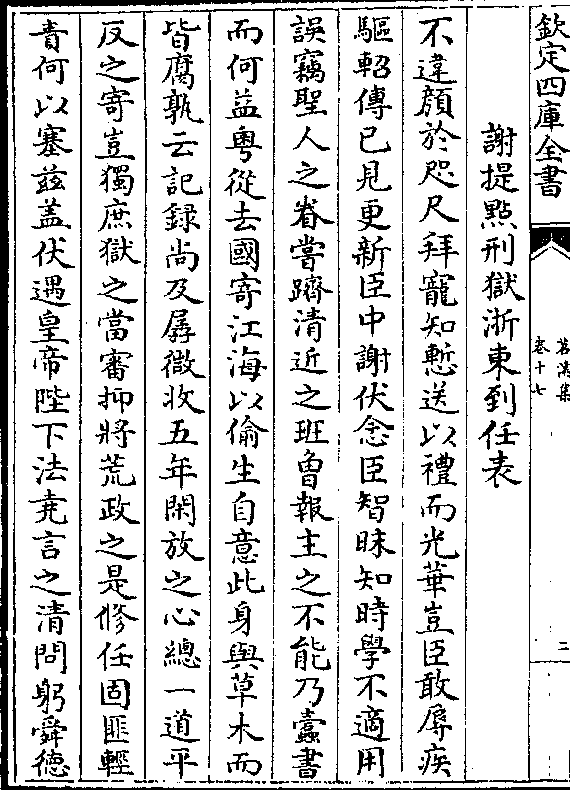 欽定四庫全書
苕溪集
卷十七
三
謝提點刑獄浙東到任表
不違顔於咫尺拜寵知慙送以禮而光華豈臣敢辱疾
驅軺傳已見更新臣中謝伏念臣智昧知時學不適用
誤竊聖人之眷嘗躋清近之班曾報主之不能乃蠹書
而何益粤從去國寄江海以偷生自意此身與草木而
皆腐孰云記録尚及孱微收五年閑放之心總一道平
反之寄豈獨庶獄之當審抑將荒政之是修任固匪輕
責何以塞兹盖伏遇皇帝陛下法堯言之清問躬舜德